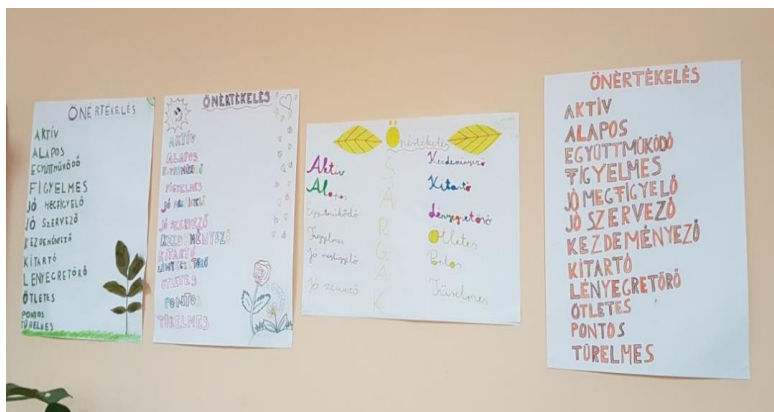 ÖNÉRTÉKELÉS
AKTÍV
ALAPOS
EGYÜTTMŰKÖDŐ
FIGYELMES
JÓ MEGFIGYELŐ
JÓ SZERVEZŐ
KEZDEMÉNYEZŐ
KITARTÓ
LÉNYEGRETÖRŐ
ÖTLETES
PONTOS
TÜRELMES
ÖNÉRTÉKELÉS
AKTÍV
ALAPOS
FIGYELMES
JÓ SZERVEZŐ
KEZDEMÉNYEZŐ
KITARTÓ
LÉNYEGRETÖRŐ
ÖTLETES
PONTOS
TÜRELMES
Önértékelés
SÁRGÁK
Aktív
Alapos
Együttműködő
Figyelmes
Jó megfigyelő
Jó szervező
Kezdeményező
Kitartó
Lényegretörő
Ötletes
Pontos
Türelmes
ÖNÉRTÉKELÉS
AKTÍV
ALAPOS
EGYÜTTMŰKÖDŐ
FIGYELMES
JÓ MEGFIGYELŐ
JÓ SZERVEZŐ
KEZDEMÉNYEZŐ
KITARTÓ
LÉNYEGRETÖRŐ
ÖTLETES
PONTOS
TÜRELMES